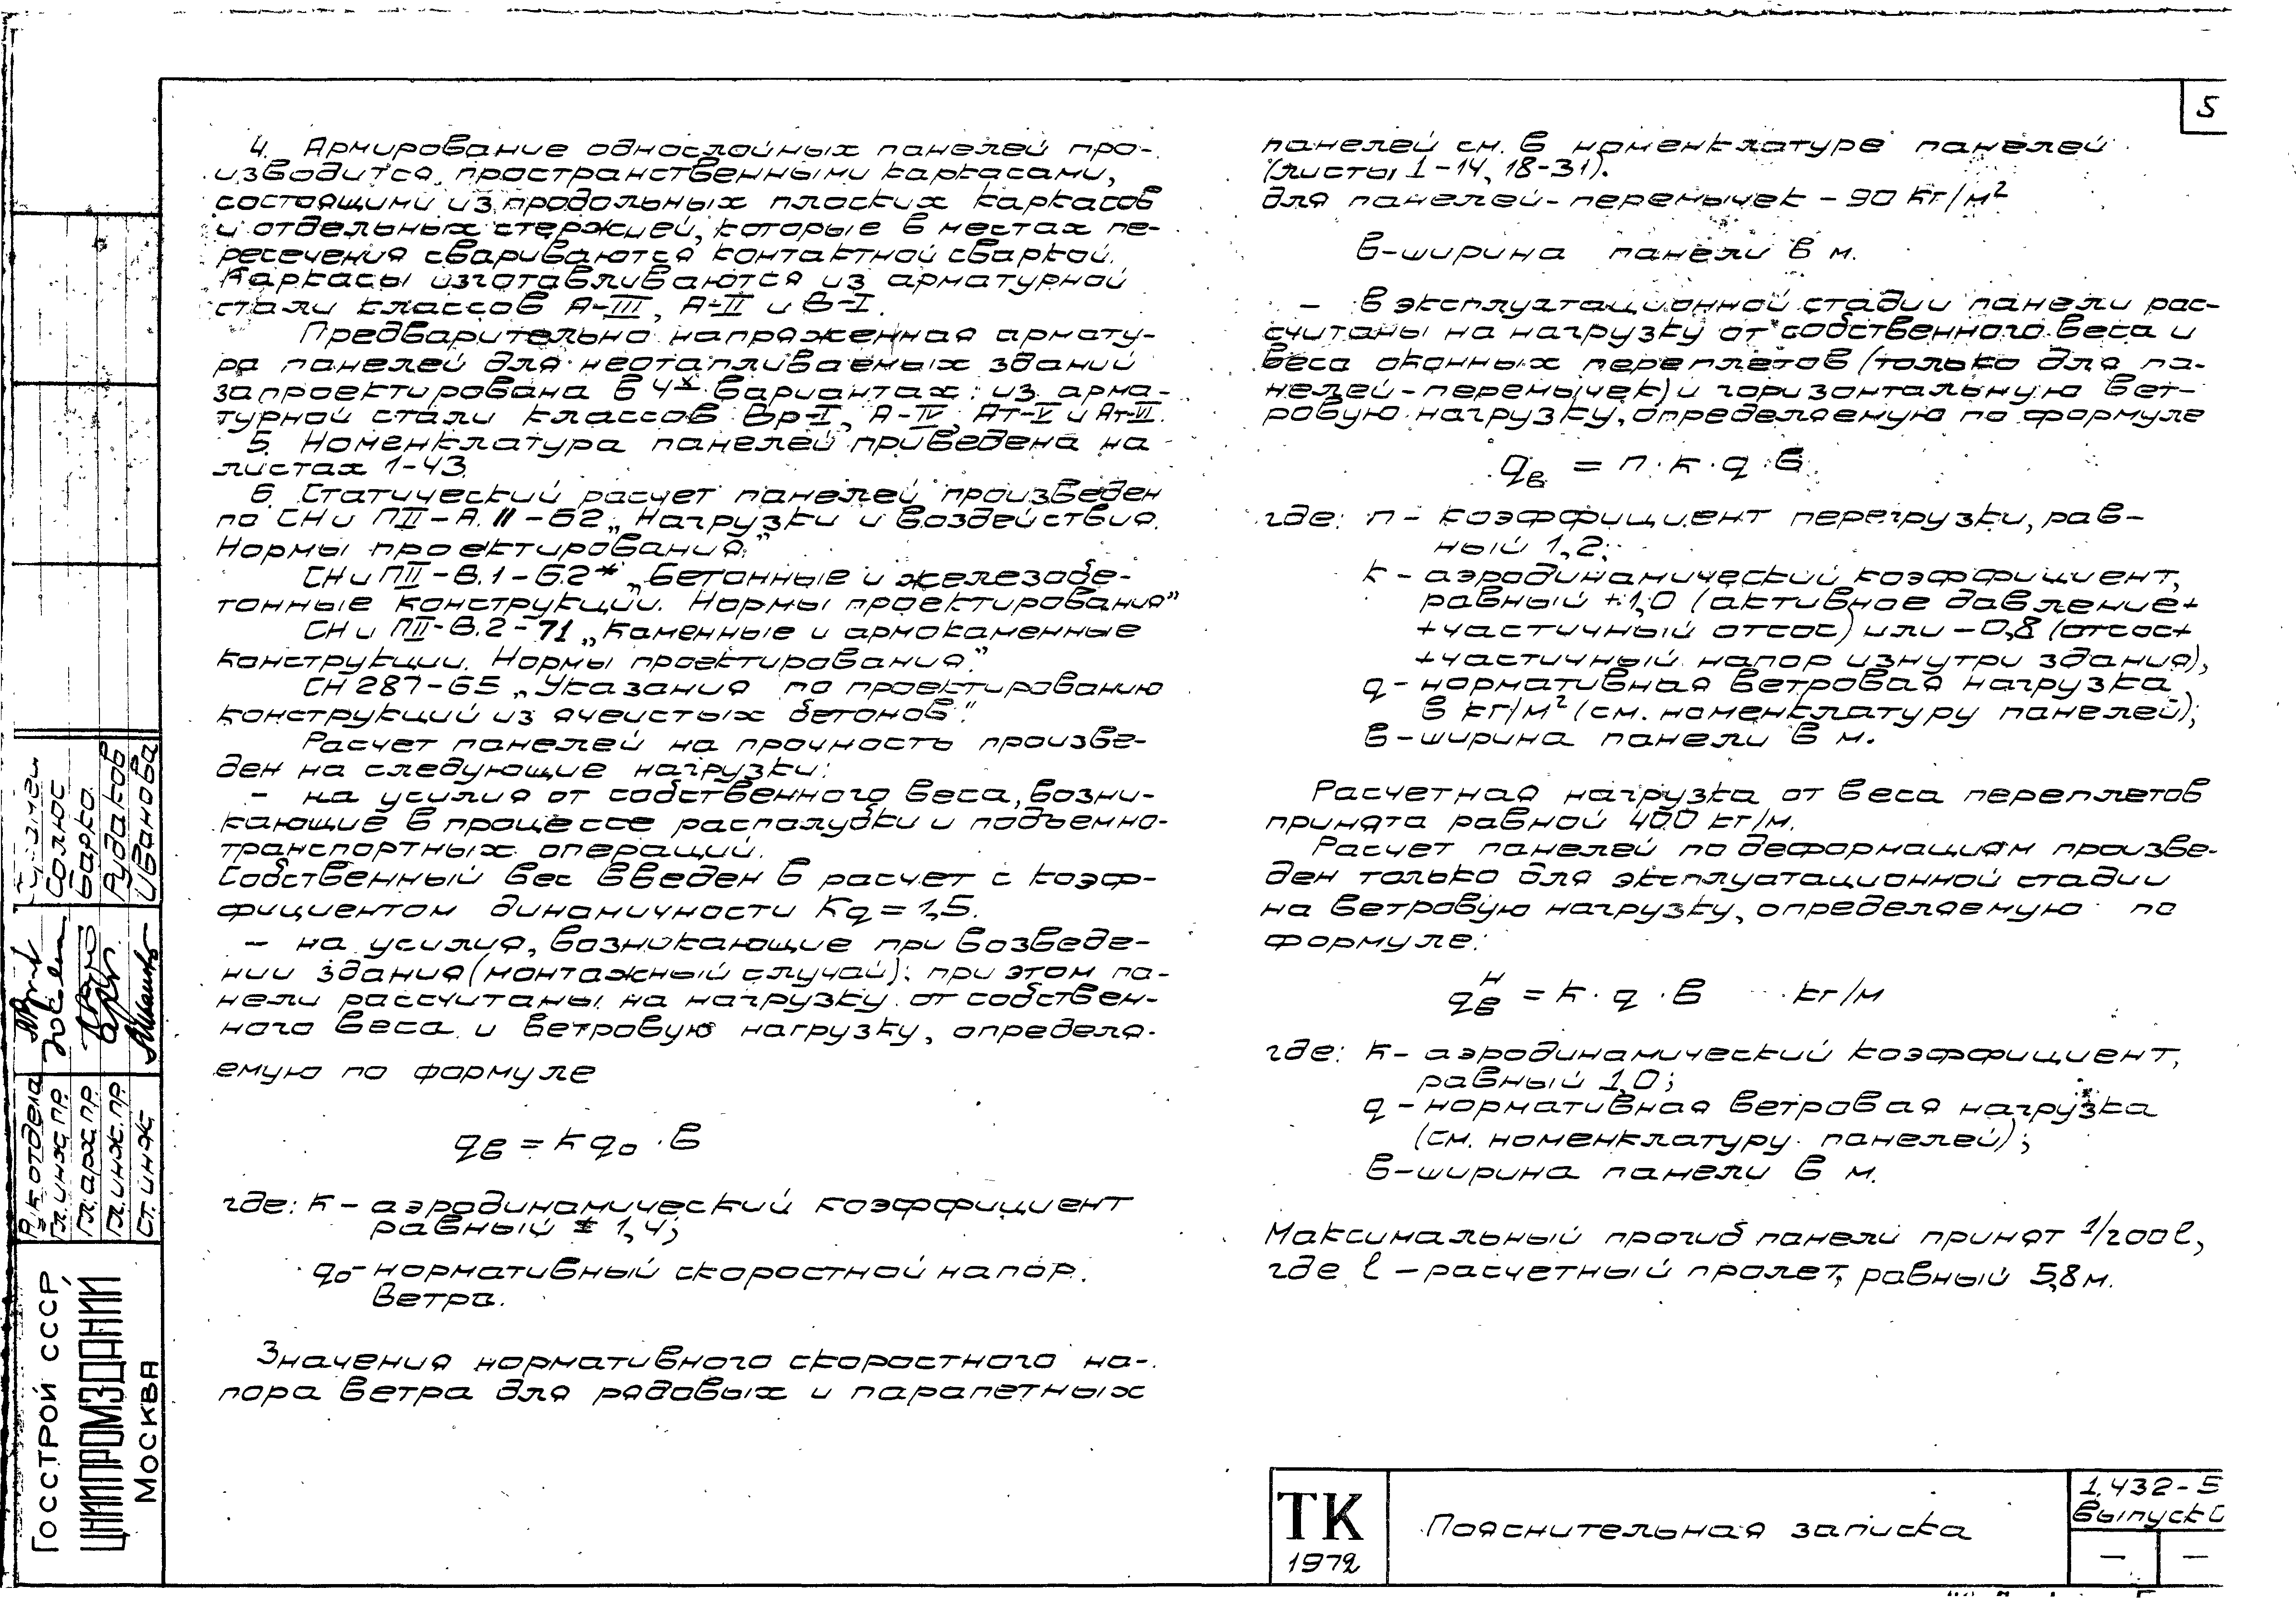 5
4. Армирование однослойных панелей про-
изводится пространственными каркасами,
состоящими из продольных плоских каркасов
и отдельных стержней, которые в местах пе-
ресечения свариваются контактной сваркой.
Каркасы изготавливаются из арматурной
стали классов А-III, А-II и В-I.
Предварительно напряженная армату-
ра панелей для неотапливаемых зданий
запроектирована в 4х вариантах: из арма-
турной стали классов Вр-I, А-IV, Ат-V и Ат-VI.
5. Номенклатура панелей приведена на
листах 1-43.
6. Статический расчет панелей произведен
по СНиПII-А.11-62 „Нагрузки и воздействия.
Нормы проектирования."
СНиПII-В.1-62* „Бетонные и железобе-
тонные конструкции. Нормы проектирования"
СНиПII-В.2-71 „Каменные и армокаменные
конструкции. Нормы проектирования."
СН 287-65 „Указания по проектированию
конструкций из ячеистых бетонов."
Расчет панелей на прочность произве-
ден на следующие нагрузки:
- на усилия от собственного веса, возни-
кающие в процессе распалубки и подъемно-
транспортных операций.
Собственный вес введен в расчет с коэф-
фициентом динамичности Kq = 1,5.
- на усилия, возникающие при возведе-
нии здания (монтажный случай): при этом па-
нели рассчитаны на нагрузку от собствен-
ного веса и ветровую нагрузку, определя-
емую по формуле
qв = к qо · в
где: к - аэродинамический коэффициент
равный ± 1,4;
qо - нормативный скоростной напор
ветра.
Значения нормативного скоростного на-
пора ветра для рядовых и парапетных
панелей см. в номенклатуре панелей
(листы 1-14, 18-31).
для панелей-перемычек - 90 кг/м²
в-ширина панели в м.
- в эксплуатационной стадии панели рас-
считаны на нагрузку от собственного веса и
веса оконных переплетов (только для па-
нелей-перемычек) и горизонтальную вет-
ровую нагрузку, определяемую по формуле
qв = п · к · q · в
где: п - коэффициент перегрузки, рав-
ный 1,2;
к - аэродинамический коэффициент,
равный +1,0 (активное давление+
+частичный отсос) или -0,8 (отсос+
+частичный напор изнутри здания),
q - нормативная ветровая нагрузка
в кг/м² (см. номенклатуру панелей);
в-ширина панели в м.
Расчетная нагрузка от веса переплетов
принята равной 400 кг/м.
Расчет панелей по деформациям произве-
ден только для эксплуатационной стадии
на ветровую нагрузку, определяемую по
формуле:
qвн = к · q · в кг/м
где: к - аэродинамический коэффициент,
равный 1,0;
q - нормативная ветровая нагрузка
(см. номенклатуру панелей);
в-ширина панели в м.
Максимальный прогиб панели принят 1/200 l,
где l - расчетный пролет, равный 5,8 м.
Солнос
Барко
Рудаков
Иванова
Рук отдела
Гл. инж. пр
Гл. арх. пр
Гл. инж. пр
Ст. инж
Госстрой СССР
ЦНИИПРОМЗДАНИЙ
Москва
ТК
1972
Пояснительная записка
1.432-5
выпуск 0
- -